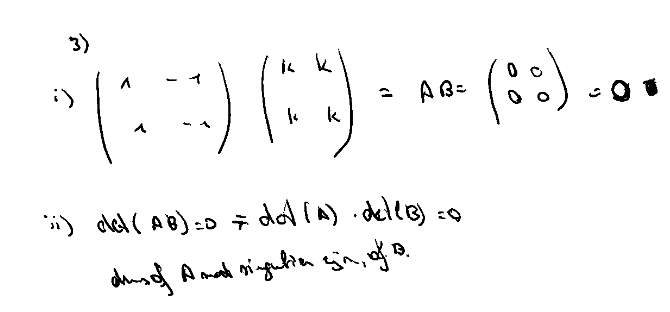 3)
i) ( 1 -1 ) ( k k ) = AB = ( 0 0 ) = 0
( 1 -1 ) ( k k ) ( 0 0 )
ii) det(AB)=0 = det(A) · det(B) = 0
dus of A moet singulier zijn, of B.